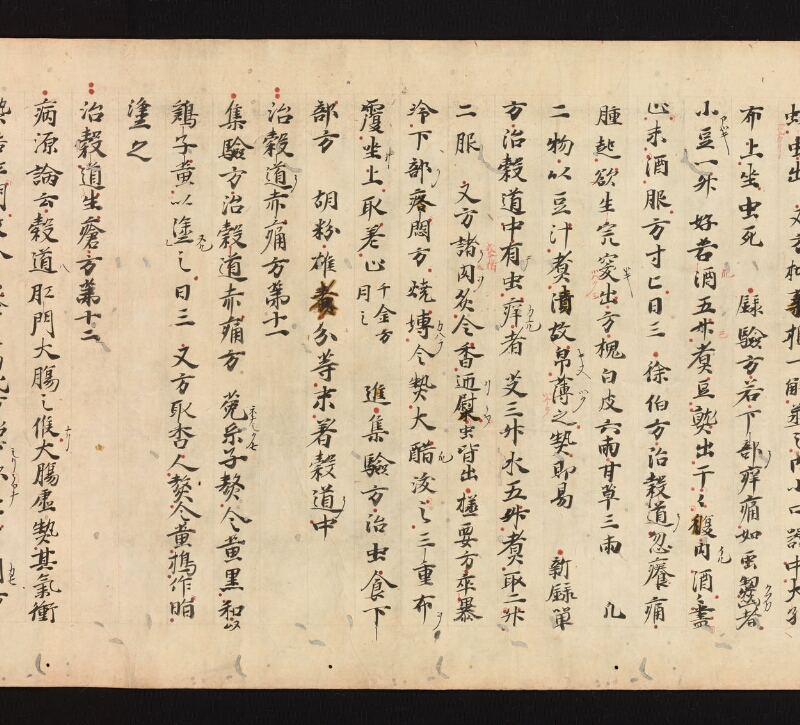 布上坐虫死　録驗方若下部痒痛如虫齧者
小豆一升　好苦酒五升煮豆熟出干〻復内酒盡
止末酒服方寸匕日三　徐伯方治穀道忽癢痛
腫起欲生宍突出方槐白皮六兩甘草三兩　凡
二物以豆汁煮漬故帛薄之熱即易　新録單
方治穀道中有虫痒者　芰三升水五升煮取二升
二服　又方諸肉炙令香近熨虫皆出　極要方療暴
冷下部疼悶方　燒塼令熱大醋沃之三重布
覆坐上取差止　千金方同之　進集驗方治虫食下
部方　胡粉雄黄分等末着穀道中
治穀道赤痛方第十一
集驗方治穀道赤痛方　菟糸子熬令黄黒和以
鶏子黄以塗之日三　又方取杏人熬令黄搗作脂
塗之
治穀道生瘡方第十二
病源論云穀道肛門大腸之候大腸虚熱其氣衝